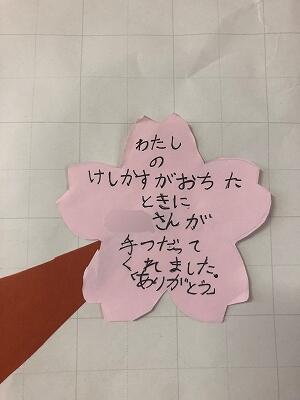 わたし
の
けしかすがおちた
ときに
さんが
手つだって
くれました。
「ありがとう」